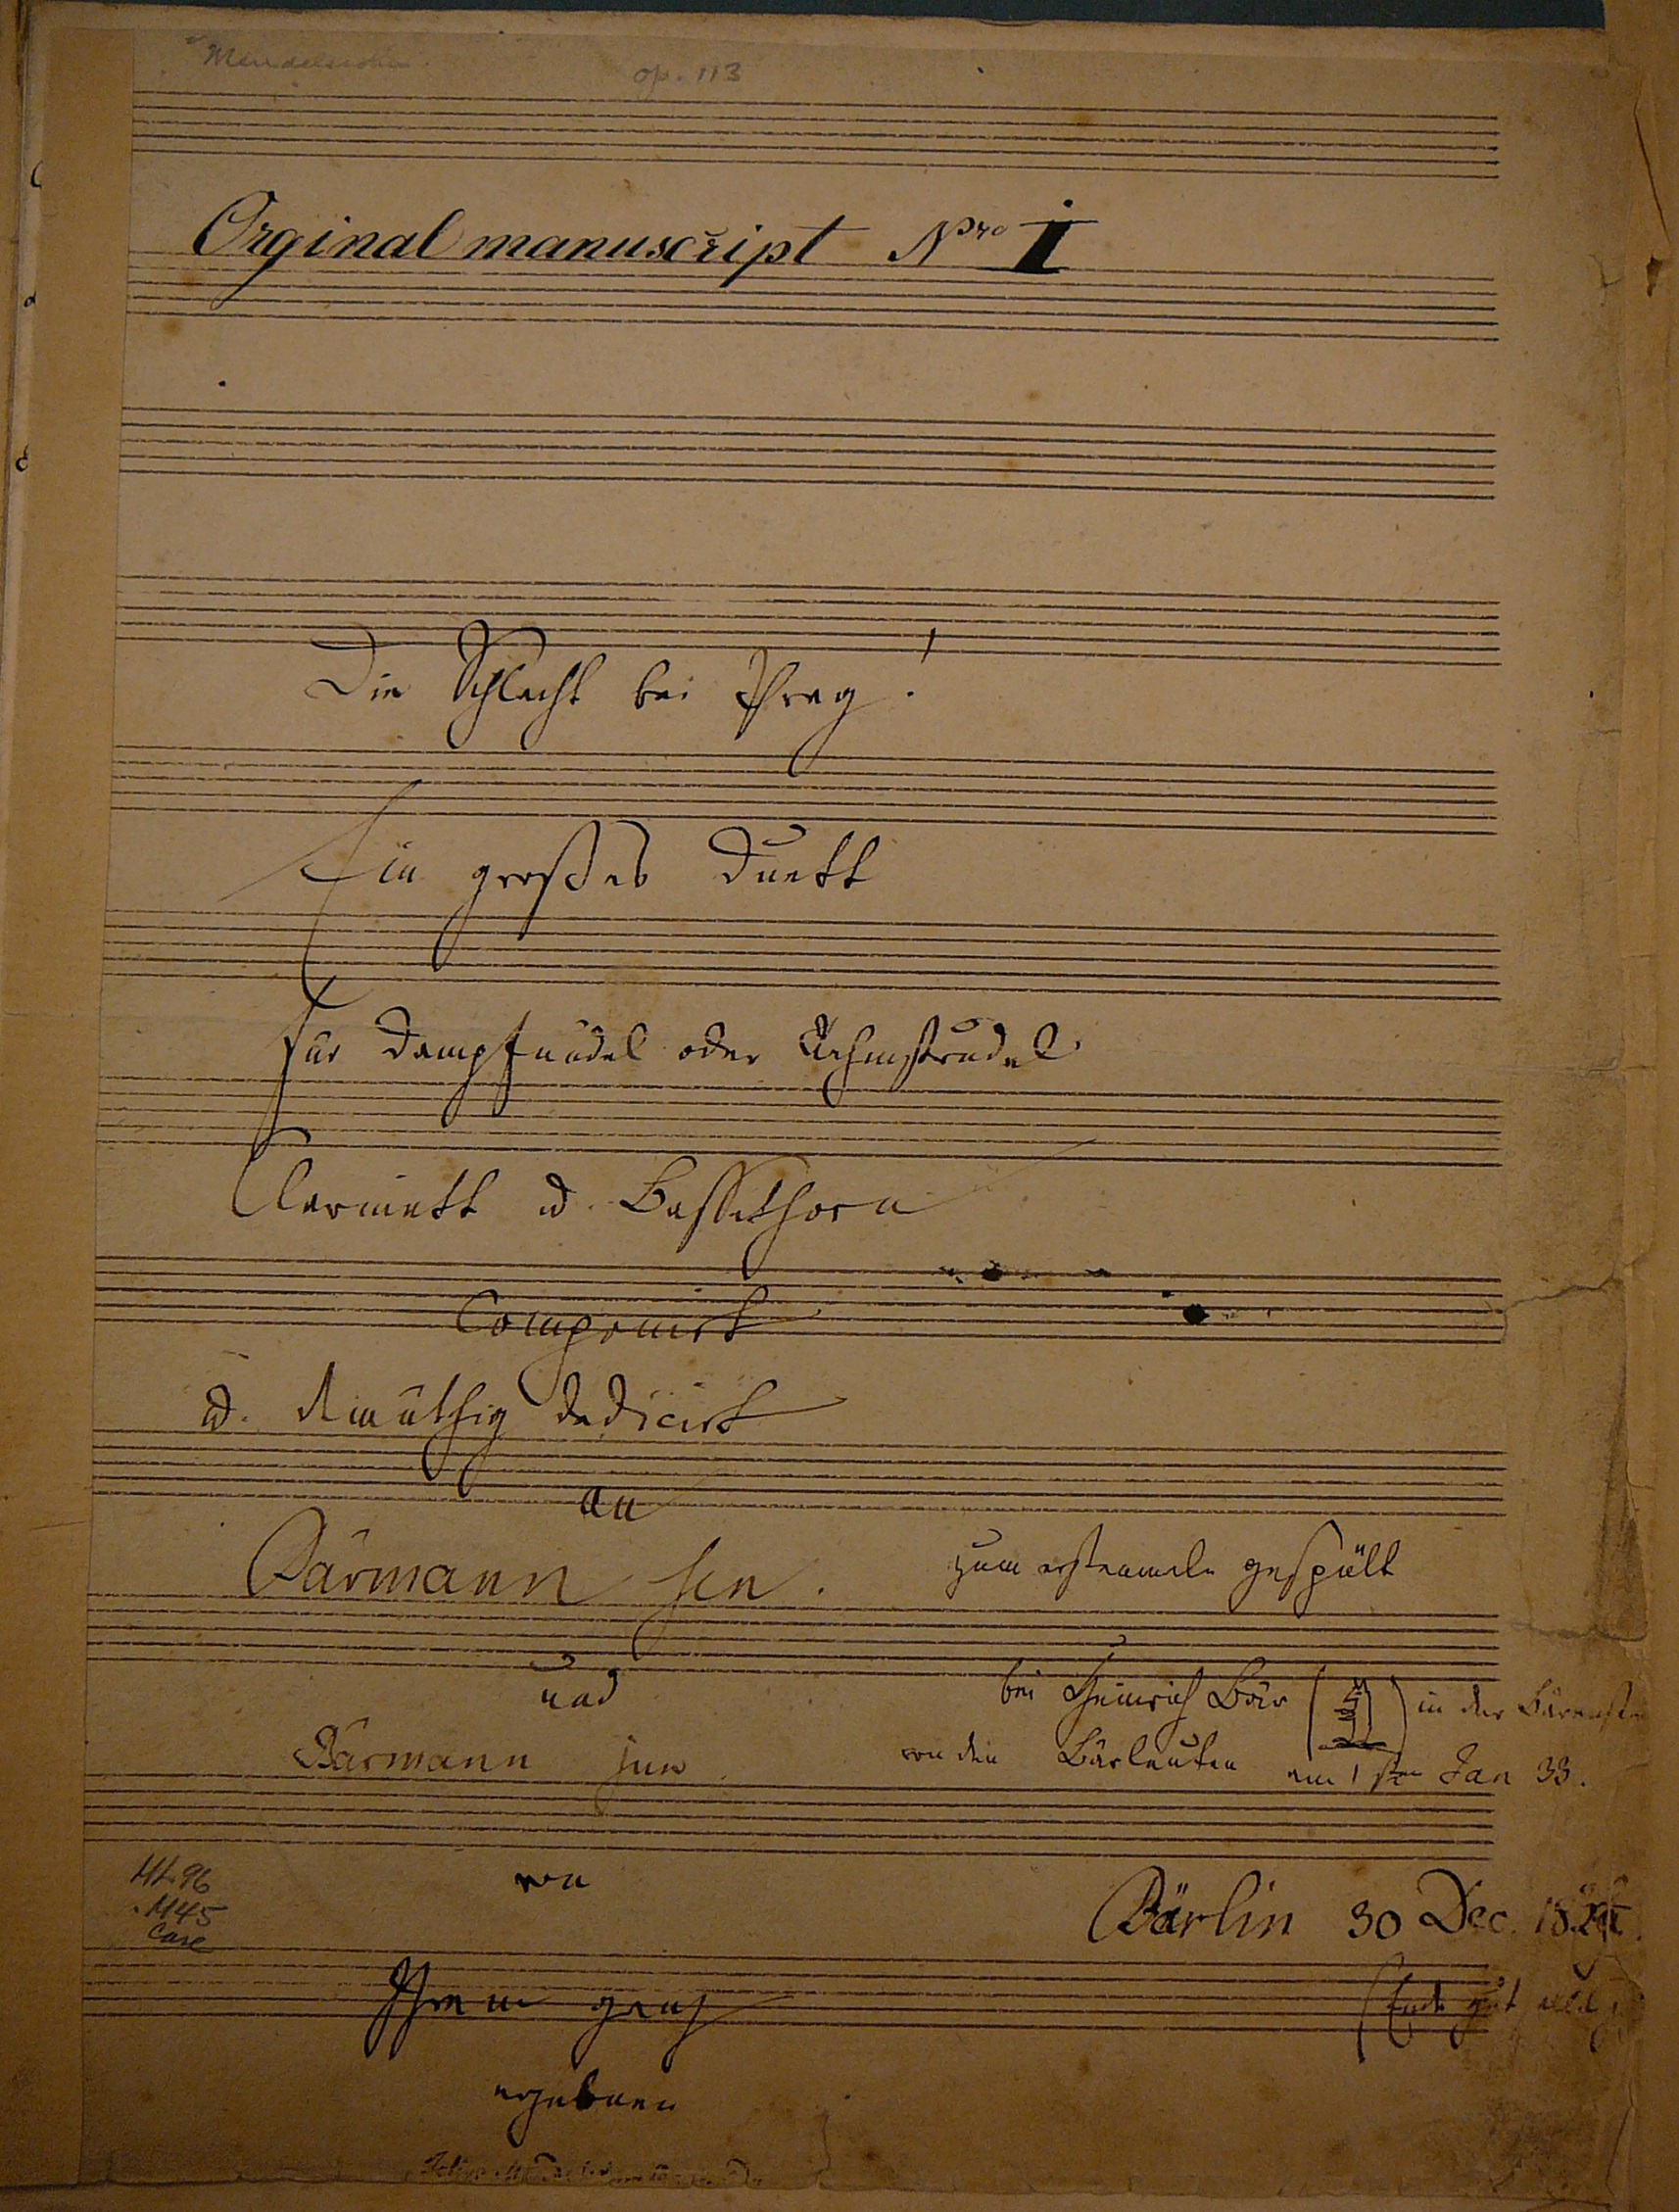 Mendelssohn
op. 113
Orginal manuscript Nro I
Die Schlacht bei Prag!
Ein großes Duett
für Dampfnudel oder Rahmstrudel
Clarinett u. Bassethorn
Componirt
u. demüthig dedicirt
an
Bärmann sen.
und
Bärmann jun.
von
Ihrem ganz
ergebnen
zum erstenmale gespült
bei Heinrich Bär in der Bärenstr
von den Bärleuten am 1sten Jan 33.
Bärlin 30 Dec.
(Ende gut
M296
.M45
Case